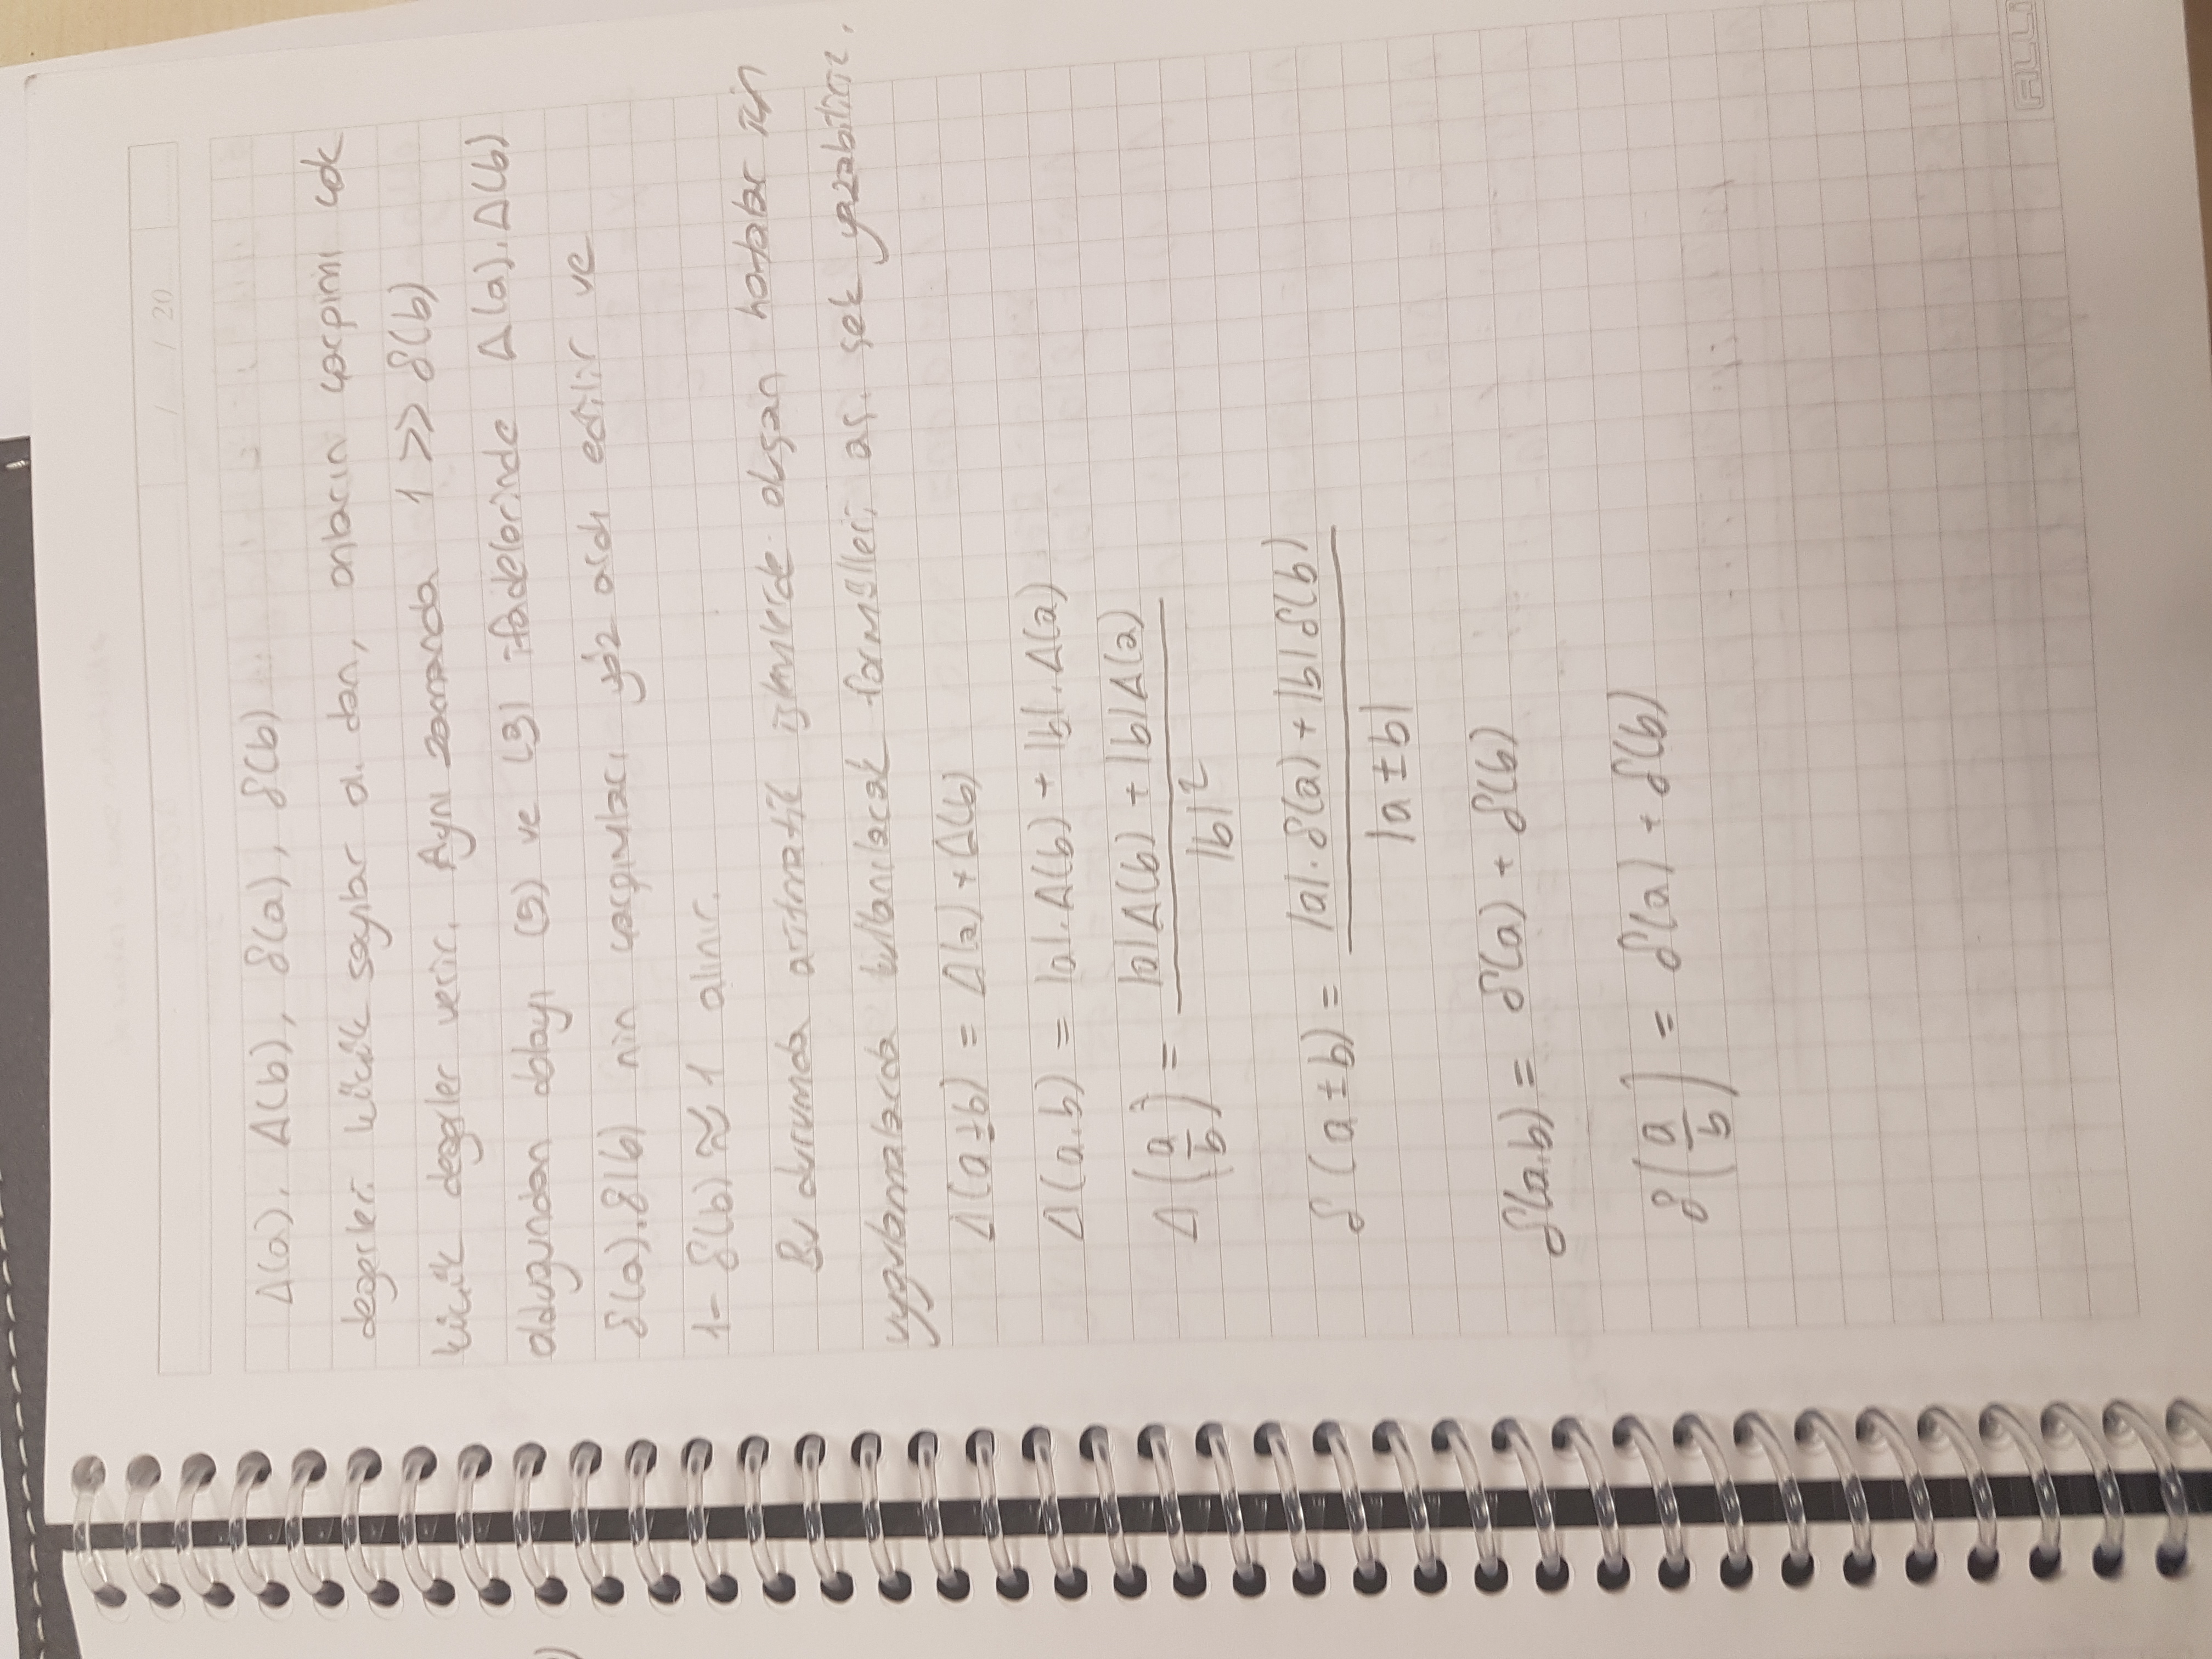 / / 20
Δ(a), Δ(b), δ(a), δ(b)
değerleri küçük sayılar ol. dan, onların çarpımı çok
küçük değerler verir. Aynı zamanda 1 >> δ(b)
olduğundan dolayı (5) ve (3) ifadelerinde Δ(a).Δ(b)
δ(a).δ(b) nin çarpımları göz ardı edilir ve
1- δ(b) ≈ 1 alınır.
Bu durumda aritmatik işlemlerde oluşan hatalar için
uygulamalarda kullanılacak formülleri aş. şek yazabiliriz.
Δ(a±b) = Δ(a) + Δ(b)
Δ(a.b) = |a|.Δ(b) + |b|.Δ(a)
Δ(a/b) = |a|Δ(b) + |b|Δ(a) / |b|²
δ(a±b) = |a|.δ(a) + |b|δ(b) / |a±b|
δ(a.b) = δ(a) + δ(b)
δ(a/b) = δ(a) + δ(b)